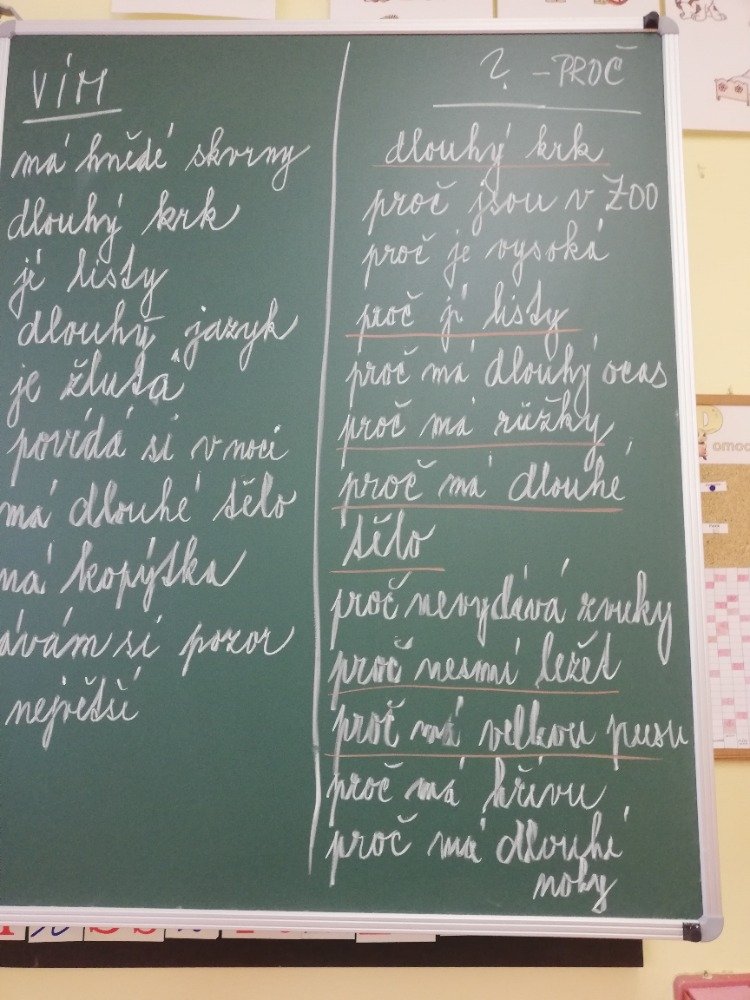 VÍM
má hnědé skvrny
dlouhý krk
jí listy
dlouhý jazyk
je žlutá
povídá si v noci
má dlouhé tělo
má kopýtka
ávám si pozor
největší
? - PROČ
dlouhý krk
proč jsou v ZOO
proč je vysoká
proč jí listy
proč má dlouhý ocas
proč má růžky
proč má dlouhé
tělo
proč nevydává zvuky
proč nesmí ležet
proč má velkou pusu
proč má hřívu
proč má dlouhé
nohy
omoc